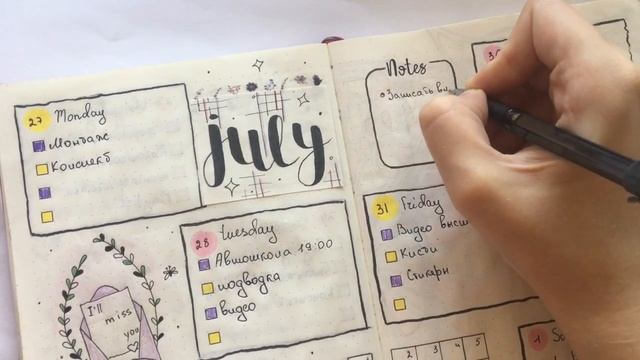 27 Monday
Монтаж
Конспект
july
28 tuesday
Автошкола 19:00
подводка
видео
I'll
miss
you
Notes
Записать ви
30
31 Friday
Видео выш
Кисти
Стикеры
2 3 4 5
1 So